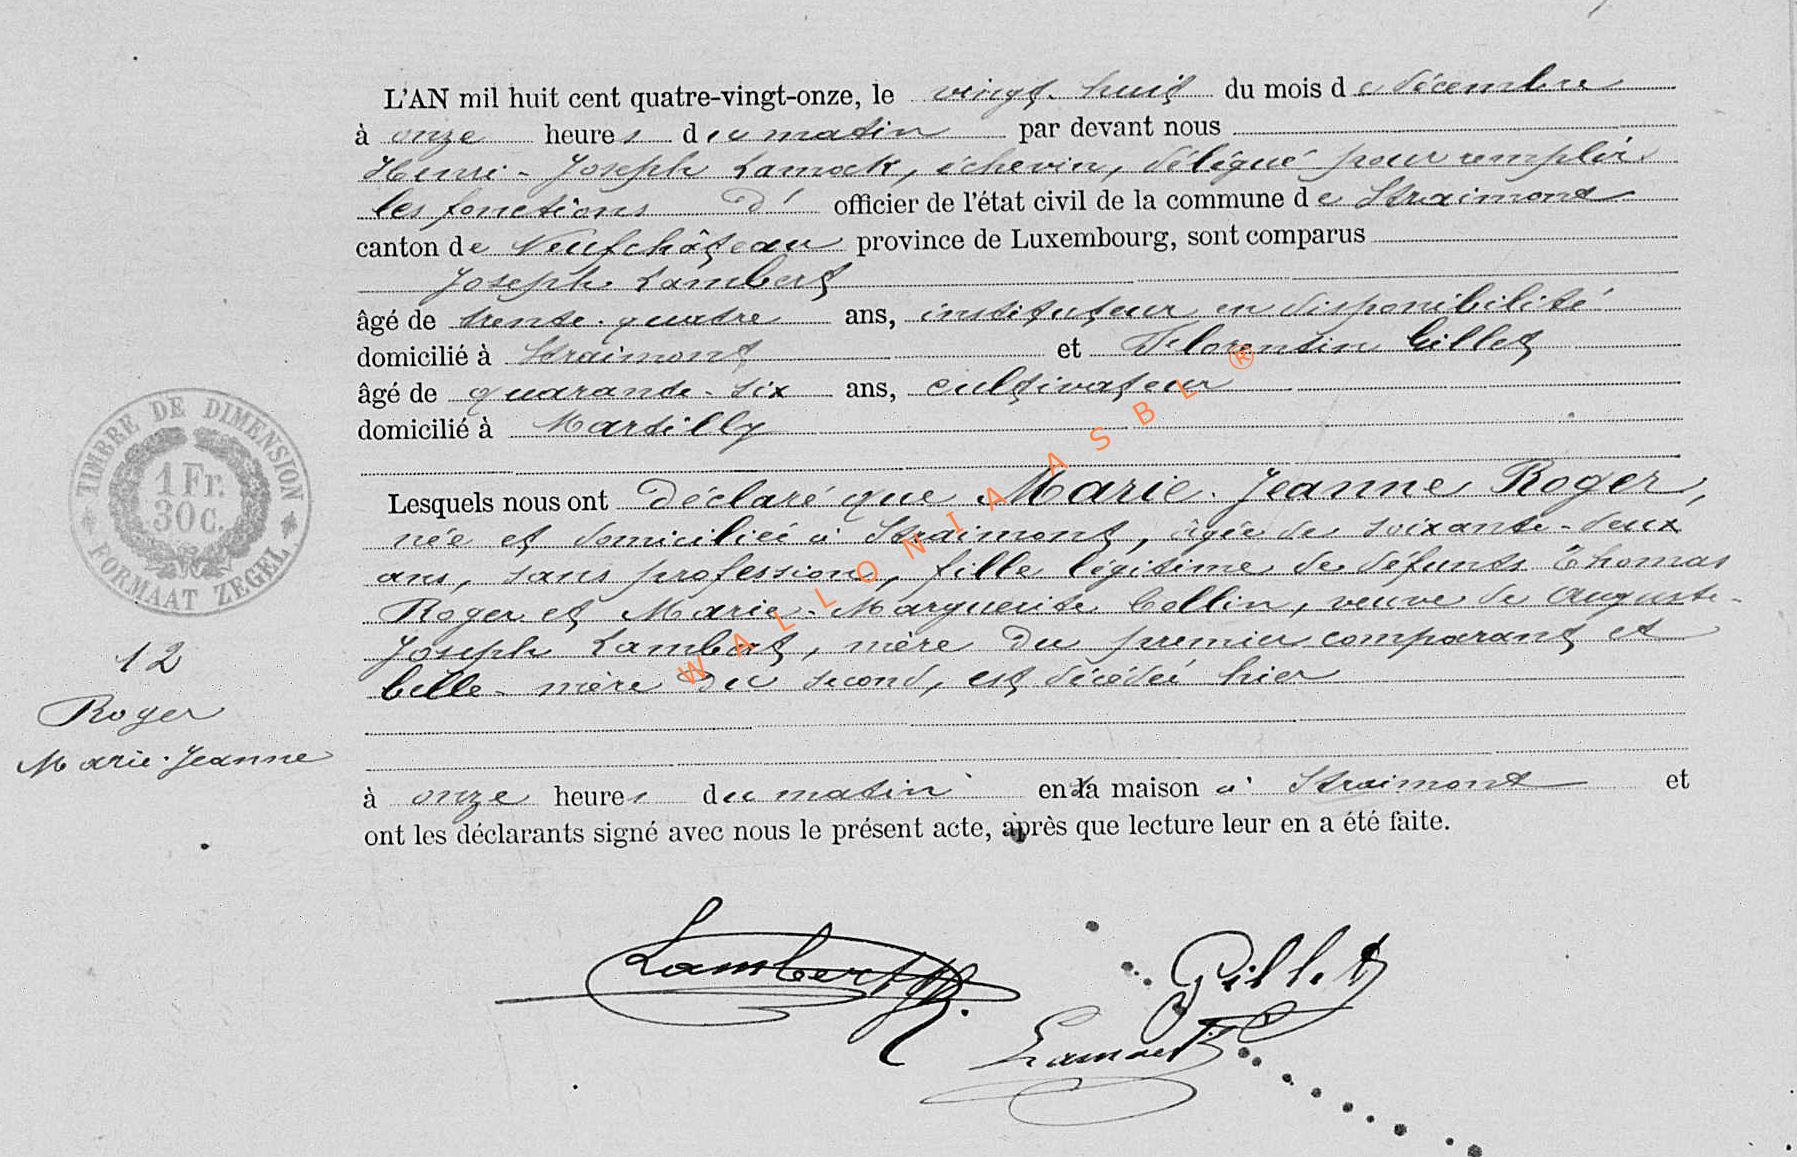 L'AN mil huit cent quatre-vingt-onze, le vingt-huit du mois de décembre
à onze heures du matin par devant nous
Henri-Joseph Lamock, échevin, délégué pour remplir
les fonctions d' officier de l'état civil de la commune de Straimont
canton de Neufchâteau province de Luxembourg, sont comparus
Joseph Lambert
âgé de trente-quatre ans, instituteur en disponibilité
domicilié à Straimont et Florentin Gillet
âgé de quarante-six ans, cultivateur
domicilié à Martilly
Lesquels nous ont déclaré que Marie-Jeanne Roger,
née et domiciliée à Straimont, âgée de soixante-deux
ans, sans profession, fille légitime de défunts Thomas
Roger et Marie-Marguerite Collin, veuve de Auguste-
Joseph Lambert, mère du premier comparant et
belle-mère du second, est décédée hier
à onze heures du matin en la maison à Straimont et
ont les déclarants signé avec nous le présent acte, après que lecture leur en a été faite.
TIMBRE DE DIMENSION
1 Fr.
30 c.
FORMAAT ZEGEL
12
Roger
Marie-Jeanne
Lambert
Gillet
WALLONIA ASBL ®